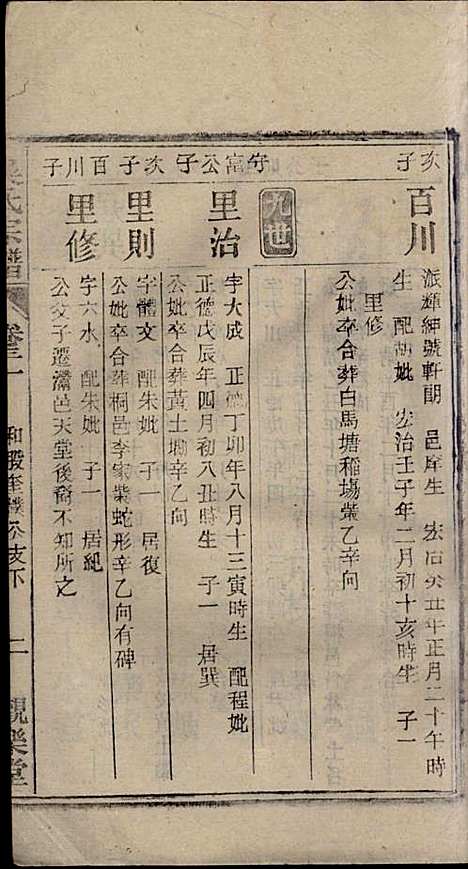 次子
百川
派輝紳號軒朗 邑庠生 宏治癸丑年正月二十午時
生 配胡妣 宏治壬子年二月初十亥時生 子一
里修
公妣卒合葬白馬塘稻場業乙辛向
九世
守富公子
里治
字大成 正德丁卯年八月十三寅時生 配程妣
正德戊辰年四月初八丑時生 子一 居巽
公妣卒合葬黃土坳辛乙向
次子
里則
字體文 配朱妣 子一 居復
公妣卒合葬桐邑李家業蛇形辛乙向有碑
百川子
里修
字六水 配朱妣 子一 居紀
公父子遷灊邑天堂後裔不知所之
氏宗譜
卷三一
和殿奎璞公支下
二
觀樂堂